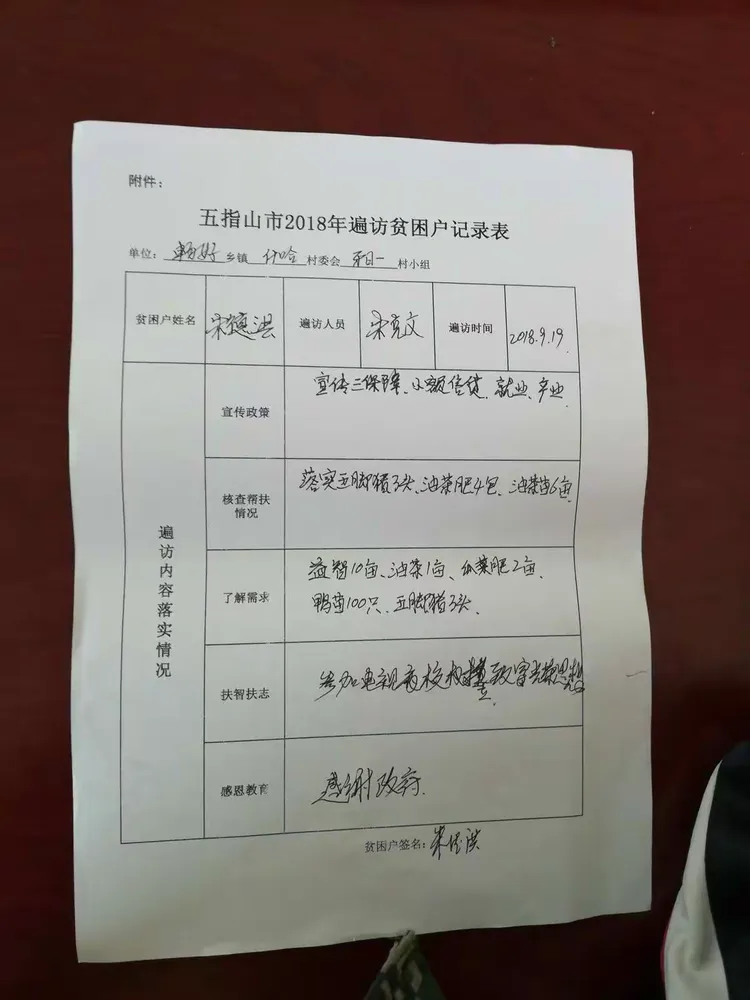 附件：
五指山市2018年遍访贫困户记录表
单位：畅好乡镇 什哈村委会 村小组
贫困户姓名 宋德洪 遍访人员 宋克文 遍访时间 2018.9.19
遍访内容落实情况
宣传政策 宣传三保障、小额信贷、就业、产业
核查帮扶情况 落实五脚猪3头、油茶肥4包、油茶苗6亩
了解需求 益智10亩、油茶1亩、肥2亩、
鸭苗100只、五脚猪3头、
扶智扶志 参加电视夜校 致富光荣思想
感恩教育 感谢政府.
贫困户签名：宋德洪